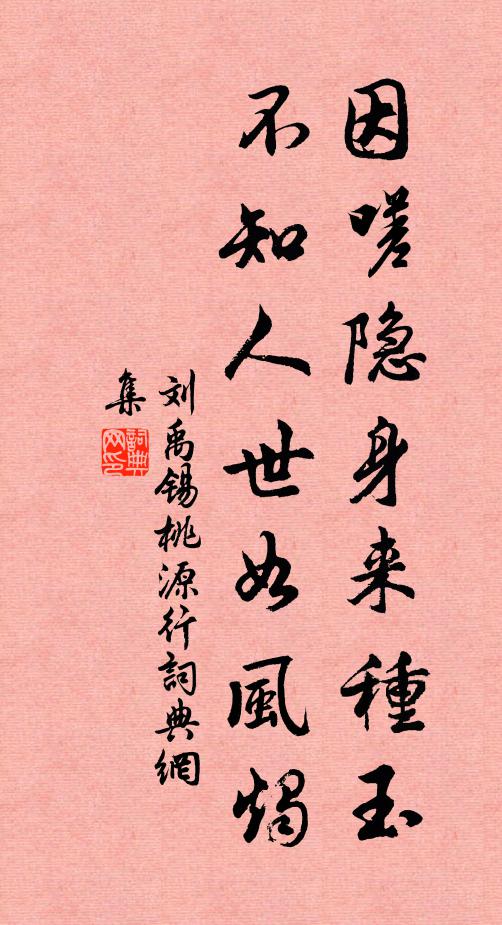 因嗟隐身来種玉
不知人世如風燭
刘禹锡桃源行詞典網
集
詞典網印